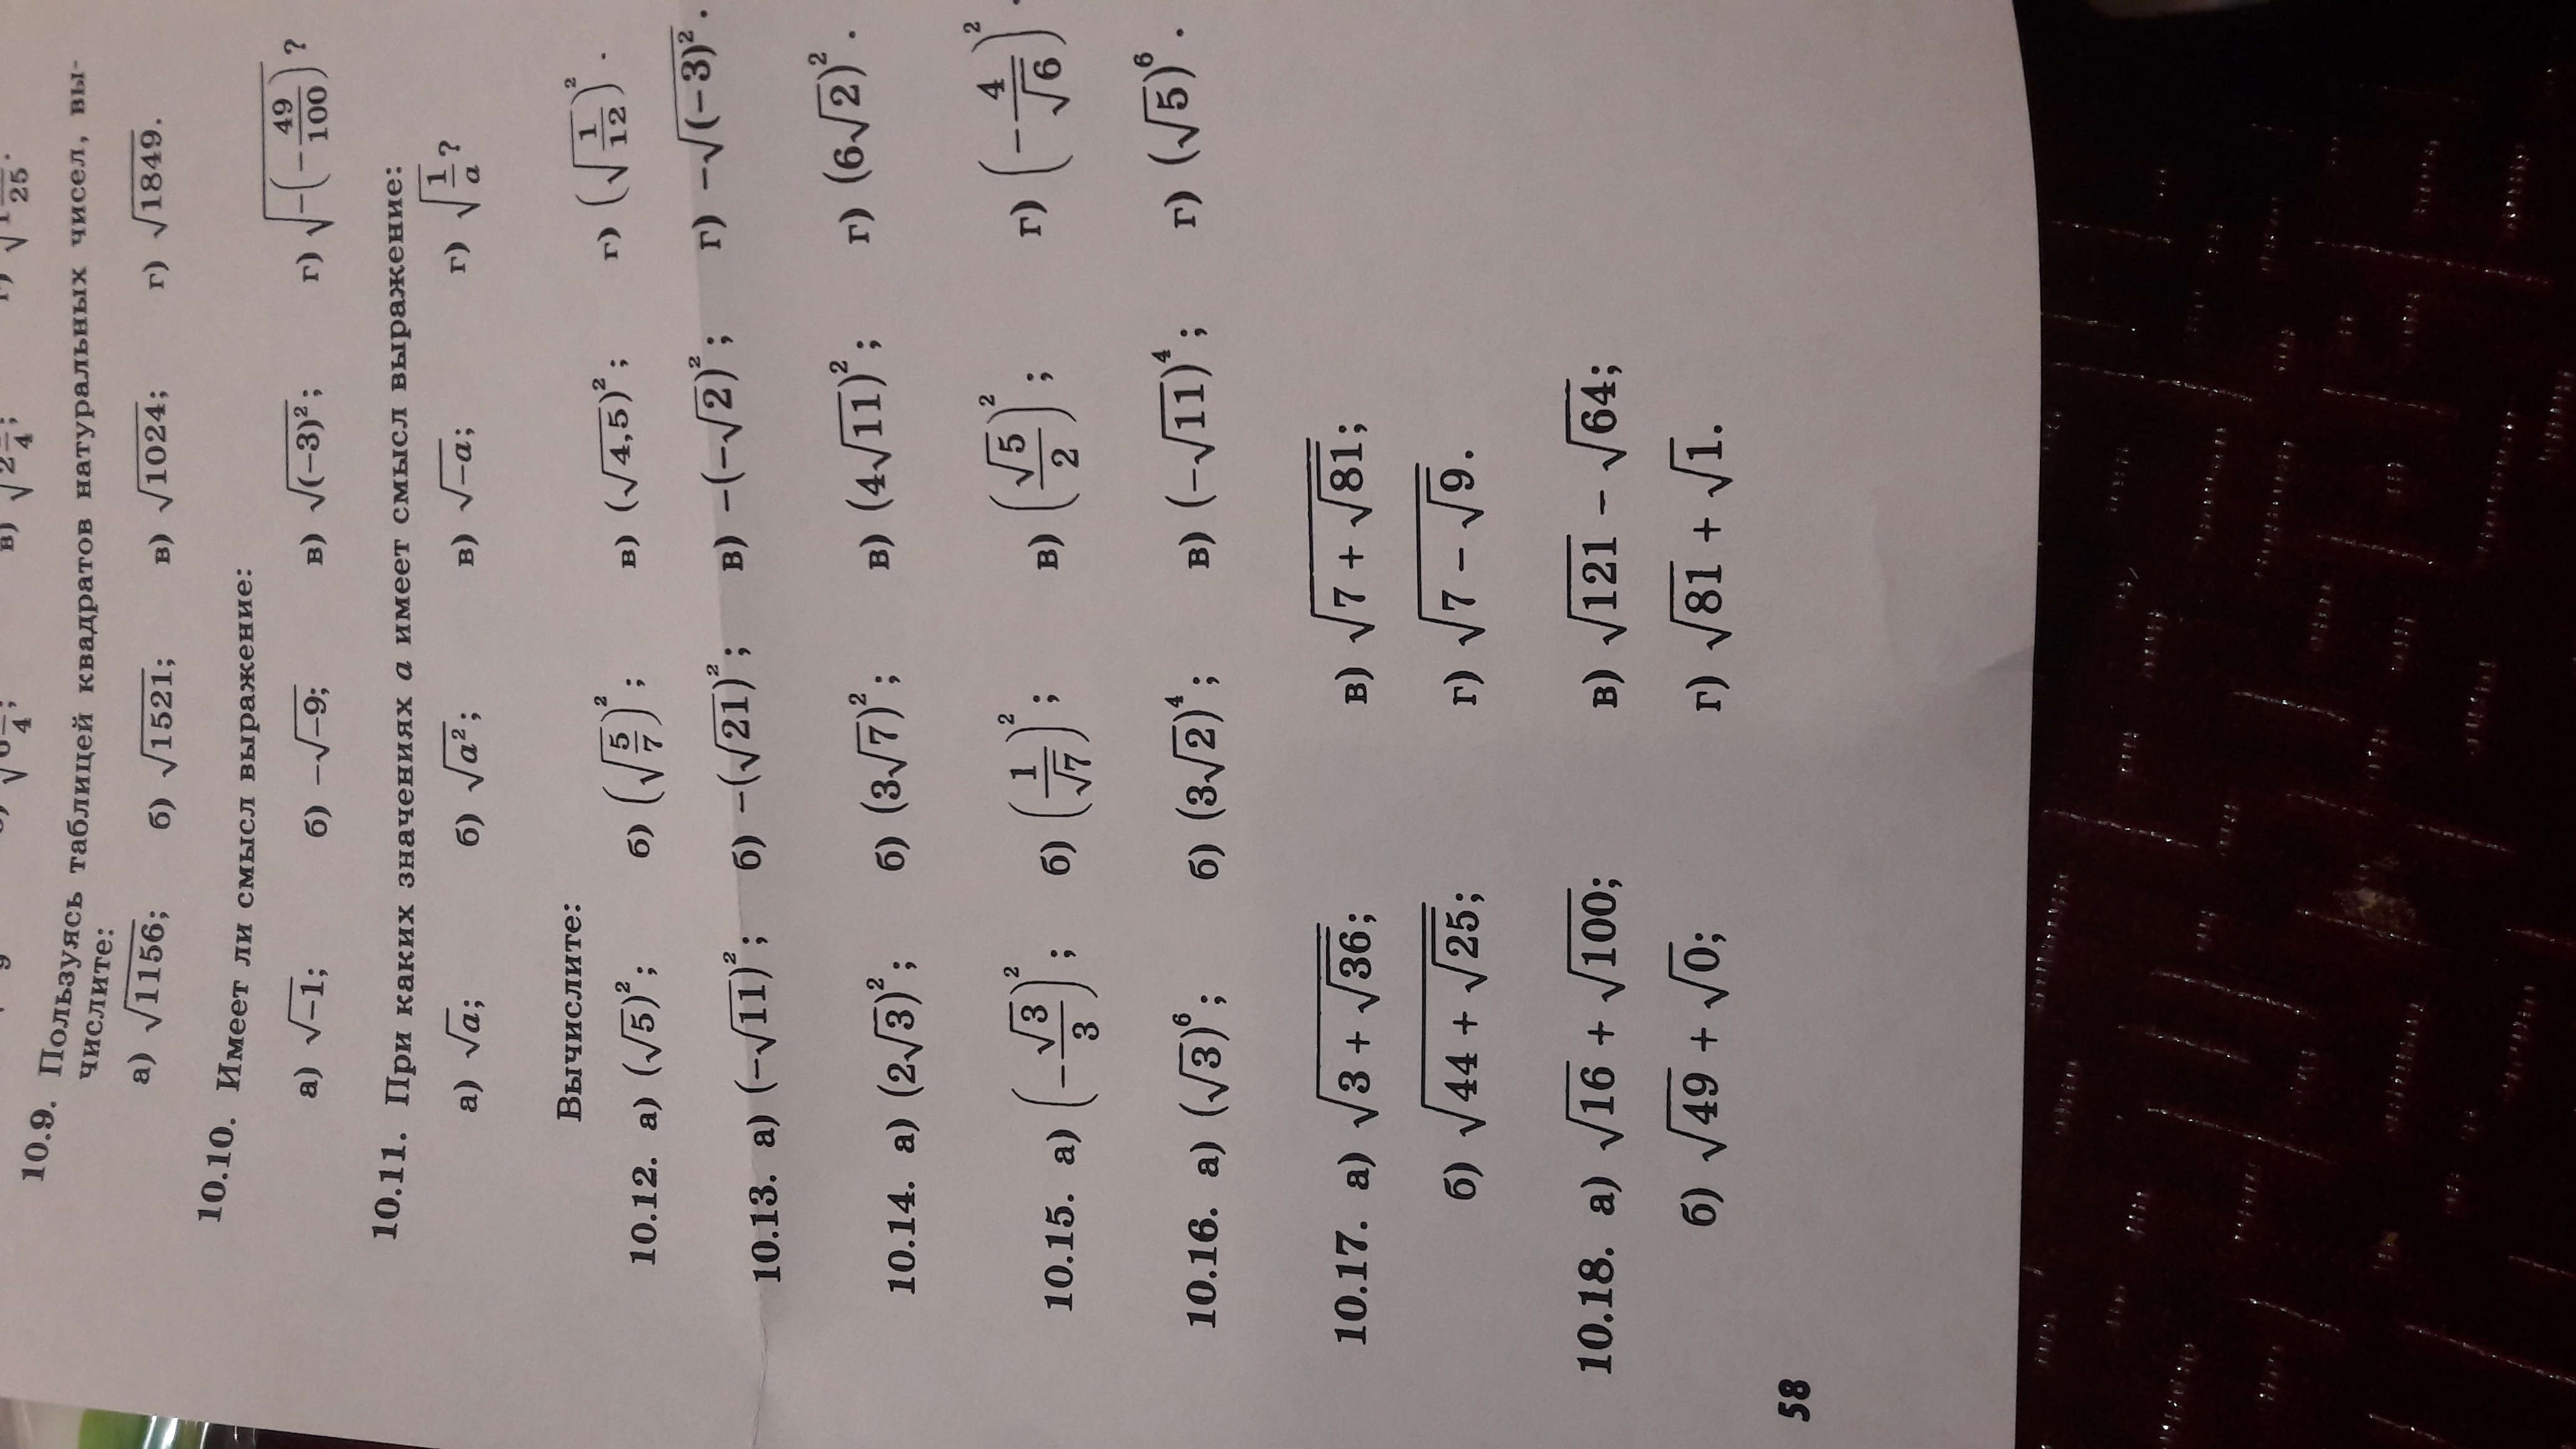 10.9. Пользуясь таблицей квадратов натуральных чисел, вы-
числите:
а) √1156; б) √1521; в) √1024; г) √1849.
10.10. Имеет ли смысл выражение:
а) √−1; б) −√−9; в) √(−3)²; г) √−(−49/100)?
10.11. При каких значениях a имеет смысл выражение:
а) √a; б) √a²; в) √−a; г) √1/a?
Вычислите:
10.12. а) (√5)²; б) (√5/7)²; в) (√4,5)²; г) (√1/12)².
10.13. а) (−√11)²; б) −(√21)²; в) −(−√2)²; г) −√(−3)².
10.14. а) (2√3)²; б) (3√7)²; в) (4√11)²; г) (6√2)².
10.15. а) (−√3/3)²; б) (1/√7)²; в) (√5/2)²; г) (−4/√6)².
10.16. а) (√3)⁶; б) (3√2)⁴; в) (−√11)⁴; г) (√5)⁶.
10.17. а) √(3 + √36); в) √(7 + √81);
б) √(44 + √25); г) √(7 − √9).
10.18. а) √16 + √100; в) √121 − √64;
б) √49 + √0; г) √81 + √1.
58